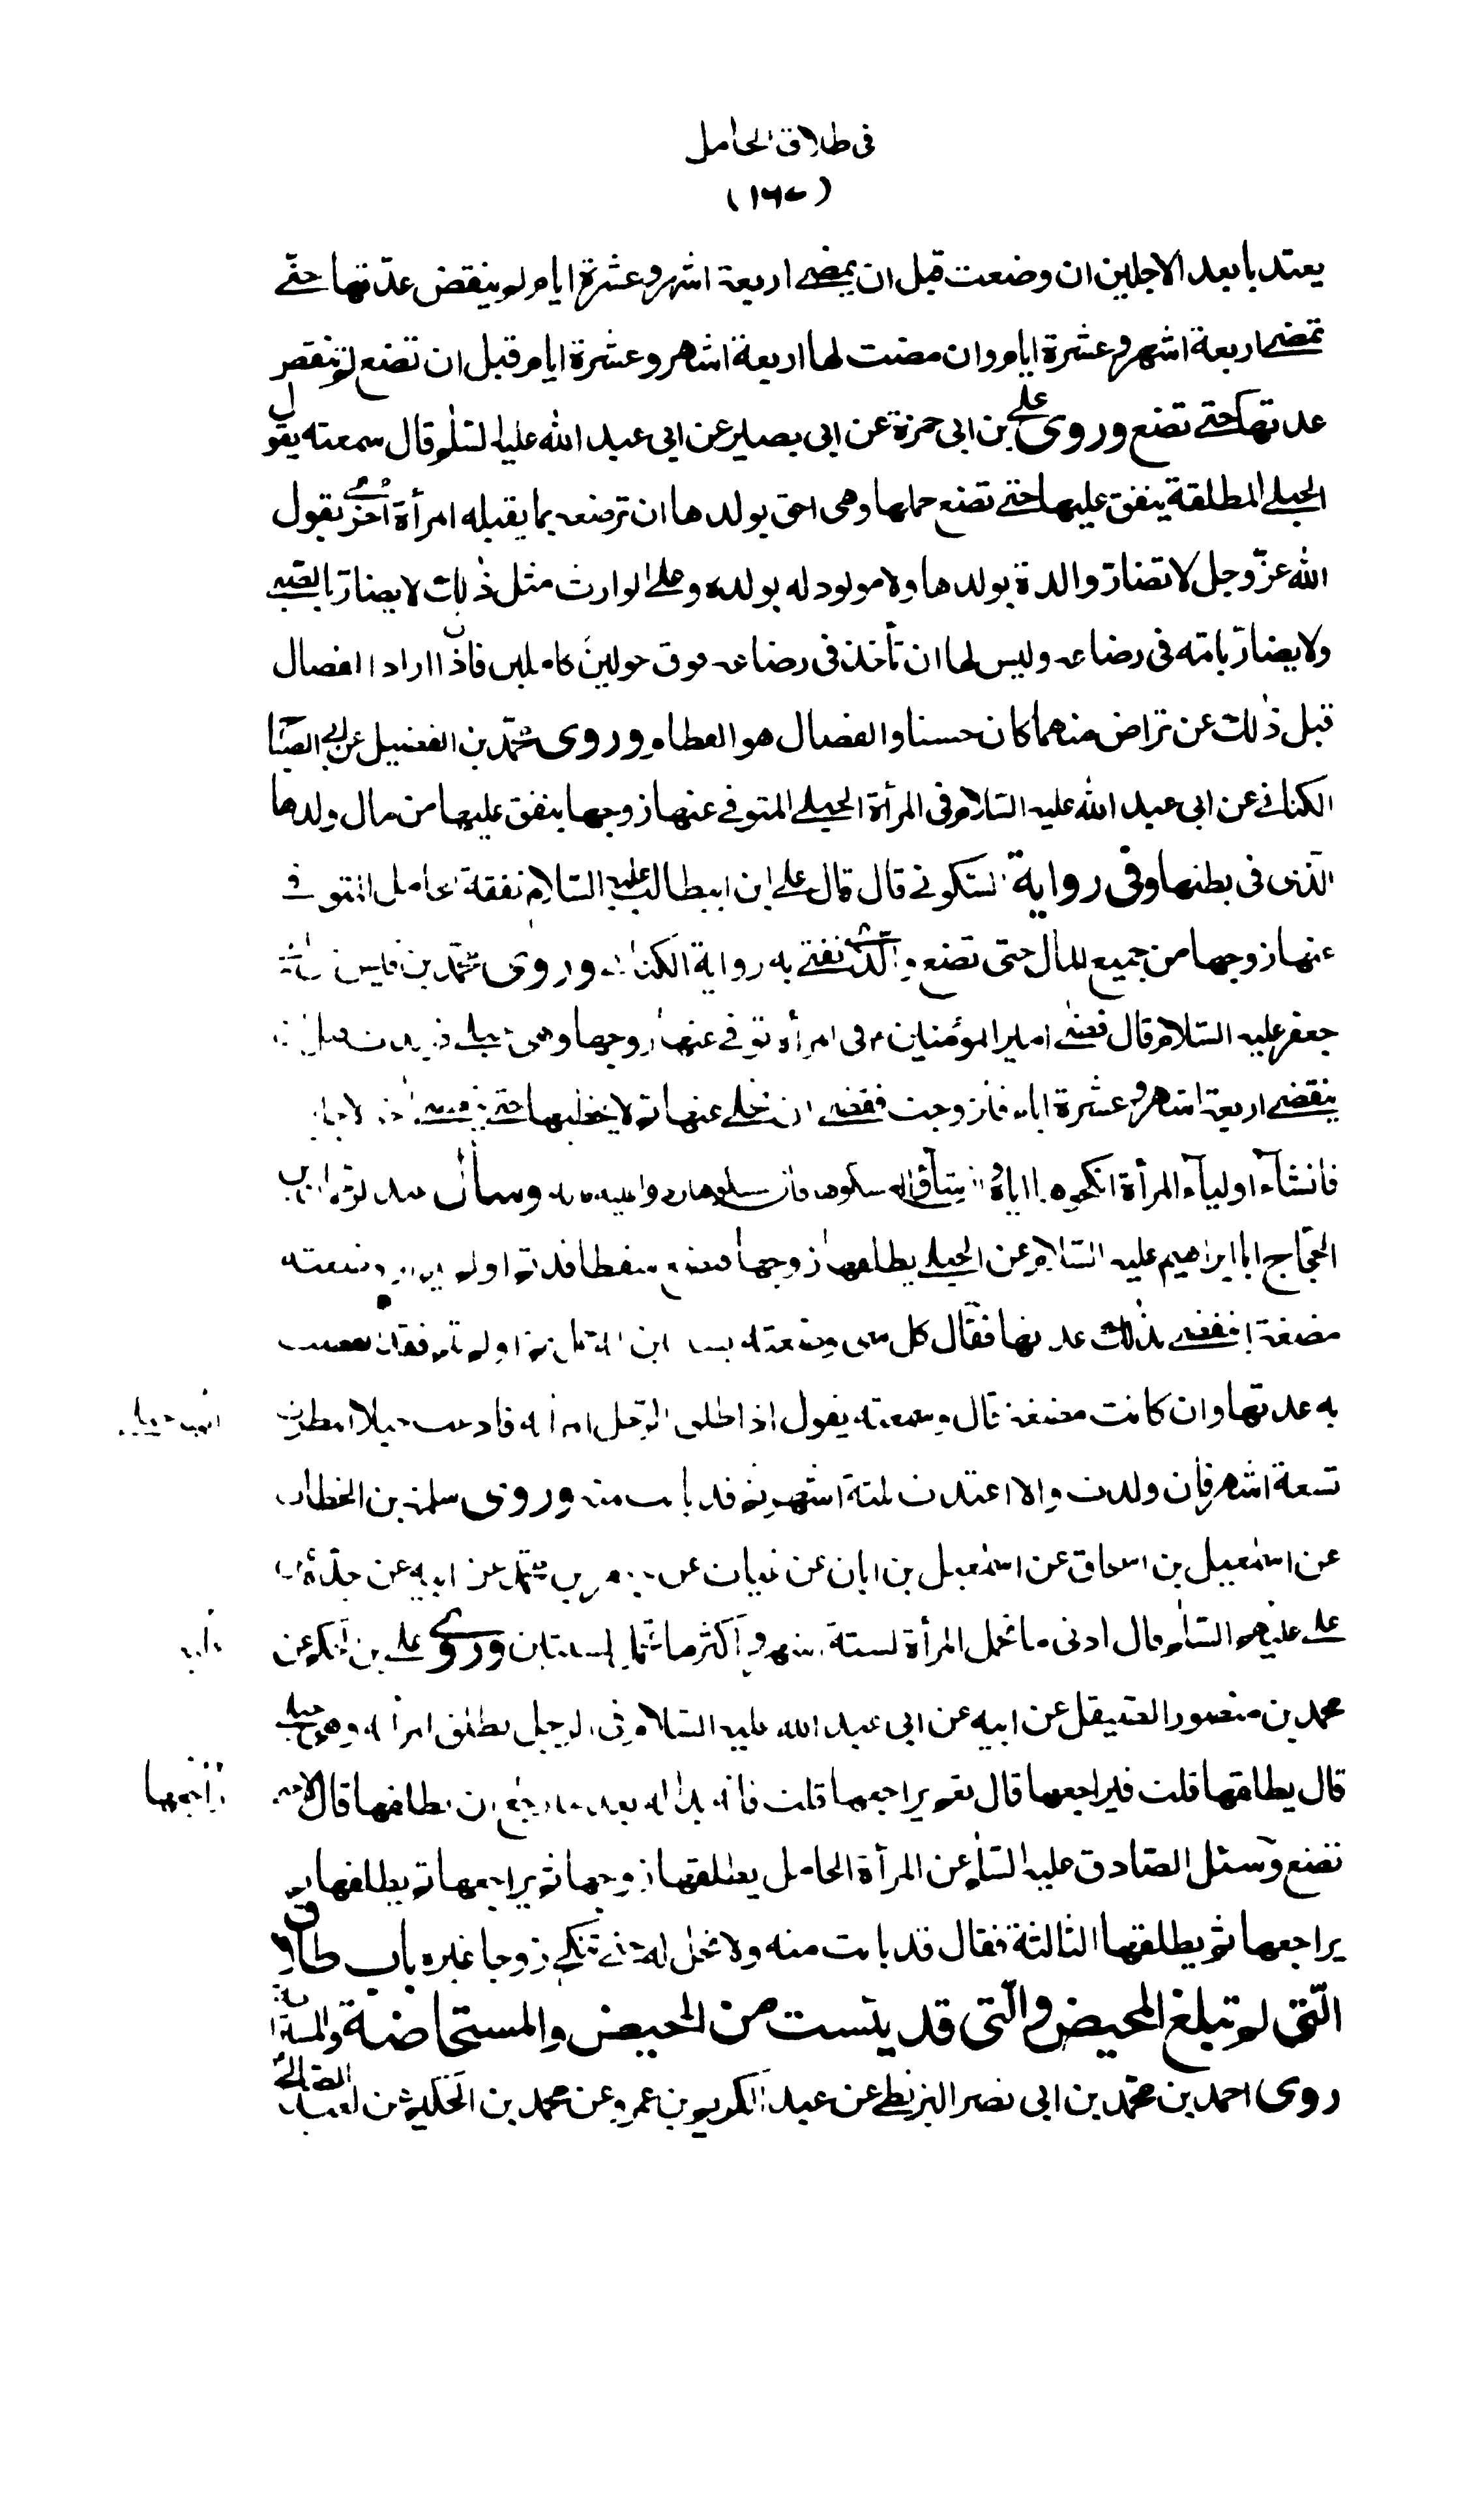 فى طلاق الحامل
(١٦٧)
يعتد بابعد الاجلين ان وضعت قبل ان يمضى اربعة اشهر و عشرة ايام لم ينقض عدّتها حتّى
تمضى اربعة اشهر و عشرة ايام وان مضت لها اربعة اشهر و عشرة ايام قبل ان تضع لم تنقض
عدتها حتى تضع وروى على بن ابى حمزة عن ابى بصير عن ابى عبد الله عليه السّلم قال سمعته يقول
الحبلى المطلقة ينفق عليها حتى تضع حملها وهى احق بولدها ان ترضعه بما يقبله امرأة اخرى يقول
الله عزّ وجل لا تضارّ والدة بولدها ولا مولود له بولده وعلى الوارث مثل ذلك لا يضارّ بالصّبى
ولا يضارّ بامّه فى رضاعه وليس لها ان تأخذ فى رضاعه فوق حولين كاملين فاذا ارادا الفصال
قبل ذلك عن تراض منهما كان حسنا والفصال هو الفطام وروى محمّد بن الفضيل عن ابى الصبّاح
الكنانى عن ابى عبد الله عليه السّلام فى المرأة الحبلى المتوفى عنها زوجها ينفق عليها من مال ولدها
الّذى فى بطنها وفى رواية السّكونى قال قال على ابن ابيطالب عليه السّلام نفقة الحامل المتوفى
عنها زوجها من جميع المال حتى تضع والّذى نفتى به رواية الكنانى وروى محمّد بن قيس
جعفر عليه السّلام قال قضى امير المؤمنين فى امرأة توفى عنها زوجها وهى حبلى فولدت قبل ان
ينقضى اربعة اشهر و عشرة ايام فتزوجت فقضى ان يخلى عنها ثم لا يخطبها حتى ينقضى اخر الاجلين
فان شآء اوليآء المرأة انكحوها اياه وان شآؤا امسكوها فان امسكوها ردوا عليه ماله وسأل عبد الرّحمن بن
الحجّاج ابا ابراهيم عليه السّلام عن الحبلى يطلقها زوجها فتضع سقطا قد تم او لم يتم او وضعته
مضغة اتنقضى بذلك عدتها فقال كل شى وضعته يستبان انّه حمل تم او لم يتم فقد انقضت
به عدتها وان كانت مضغة قال وسمعته يقول اذا طلق الرّجل امرأته فادعت حبلا انتظرت
تسعة اشهر فان ولدت والا اعتدت ثلثة اشهر ثم قد بانت منه وروى سلمة بن الخطاب
عن اسمعيل بن اسحاق عن اسمعيل بن ابان عن غياث عن جعفر بن محمّد عن ابيه عن جدّه عن
على عليهم السّلم قال ادنى ما تحمل المرأة لستة اشهر و اكثر ما تحمل لسنتين وروى على بن الحكم عن
محمد بن منصور الصّيقل عن ابيه عن ابى عبد الله عليه السّلام فى الرجل يطلق امرأته وهى حبلى
قال يطلقها قلت فيراجعها قال نعم يراجعها قلت فانه بدا له بعد ما راجعها ان يطلقها قال لا حتى
تضع وسئل الصّادق عليه السّلم عن المرأة الحامل يطلقها زوجها ثم يراجعها ثم يطلقها ثم
يراجعها ثم يطلقها الثالثة فقال قد بانت منه ولا تحل له حتى تنكح زوجا غيره باب طلاق
الّتى لم تبلغ المحيض والّتى قد يئست من المحيض والمستحاضة والمسترابة
روى احمد بن محمّد بن ابى نصر البزنطى عن عبد الكريم بن عمرو عن محمد بن الحكيم عن العبد الصّالح